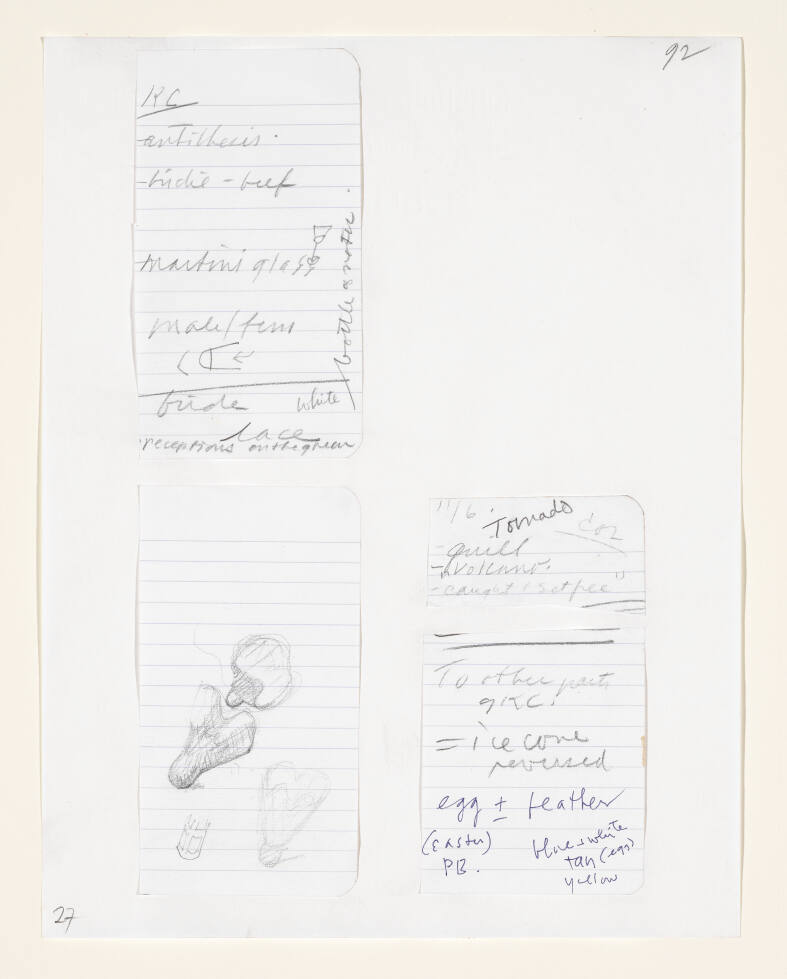 92
KC
antithesis.
-birdie - beef
-martini glass
bottle & notes.
male/fem
bride white
lace
receptions on the green
11/6. Tornado
- quill
- volcano.
- caught & set free"
To other parts
of KC.
= ice cone
reversed
egg ± feather
(Easter)
PB.
blue & white
tan (egg)
yellow
27